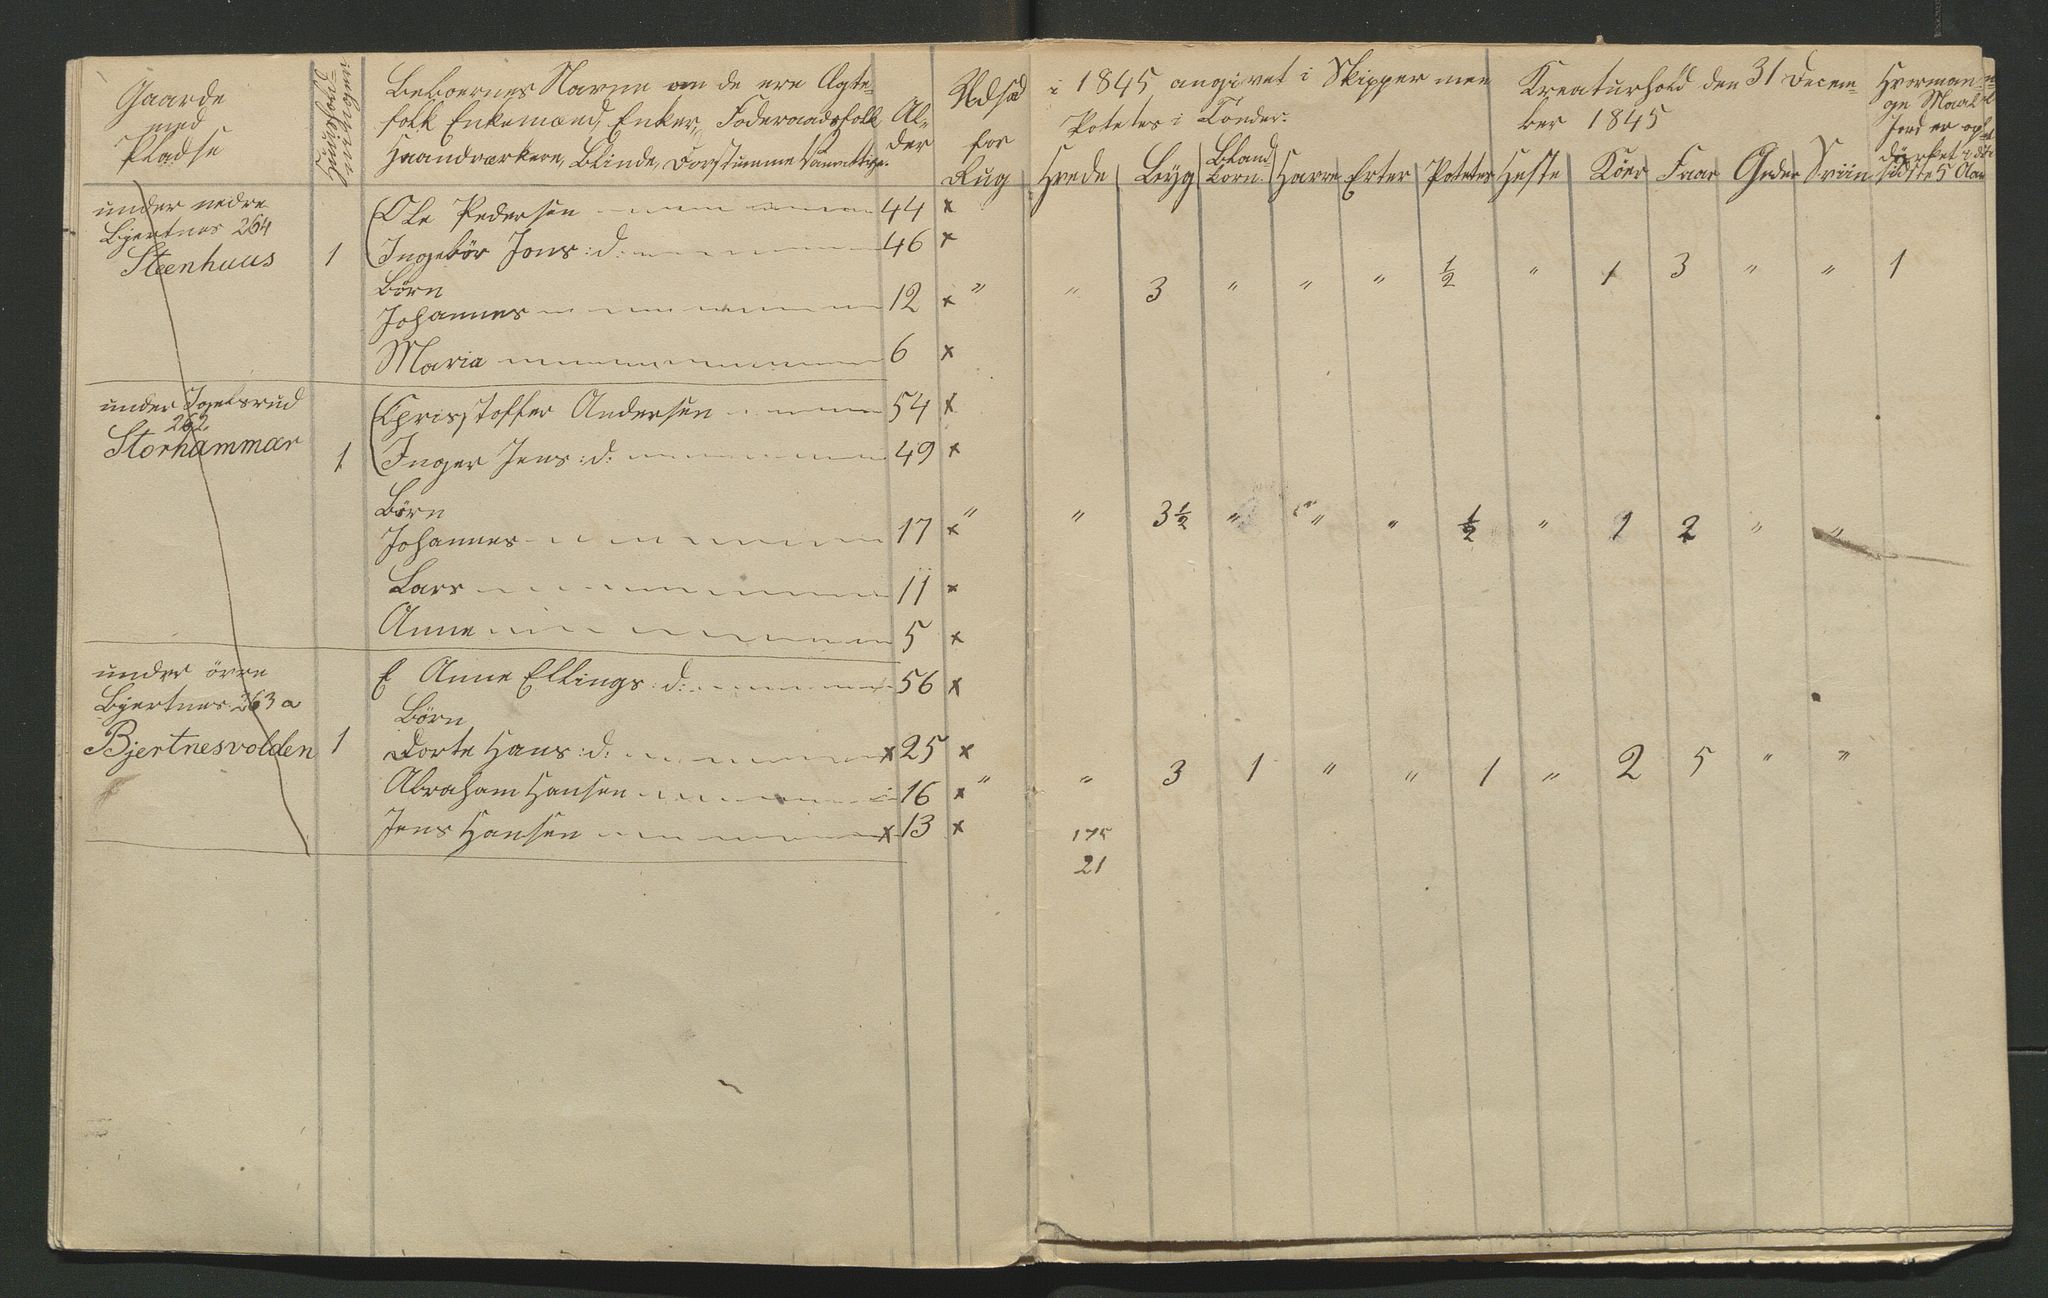 Gaarde
med
Pladse
Huushold-
ninger
Beboernes Navne om de ere Ægte-
folk Enkemænd, Enker, Foderaadsfolk
Haandværkere, Blinde, Døvstumme
Al-
der
Udsæd
for
Rug
i 1845 angivet i Skipper men
Potetes i Tönder.
Hvede Byg Bland Korn Havre Erter Potetes
Kreaturhold den 31 Decem-
ber 1845
Heste Köer Faar Geder Sviin
Hvorman-
ge Maal
Jord er op
dÿrket i de
sidste 5 Aar
under nedre
Bjertnes 264
Steenhuus 1
Ole Pedersen 44 x
Ingebör Jons:d: 46 x
Börn
Johannes 12 x " " 3 " " " 1/2 " 1 3 " " 1
Maria 6 x
under Ingelsrud
262
Storhammar 1
Christoffer Andersen 54 x
Inger Jens:d: 49 x
Börn
Johannes 17 x " " 3 1/2 " " " 1/2 " 1 2 " "
Lars 11 x
Anne 5 x
under övre
Bjertnes 263 a
Bjertnesvolden 1
E Anne Ellings:d: 56 x
Börn
Dorte Hans:d: x 25 x
Abraham Hansen 16 x " " 3 1 " " 1 " 2 5 " "
Jens Hansen x 13 x
175
21